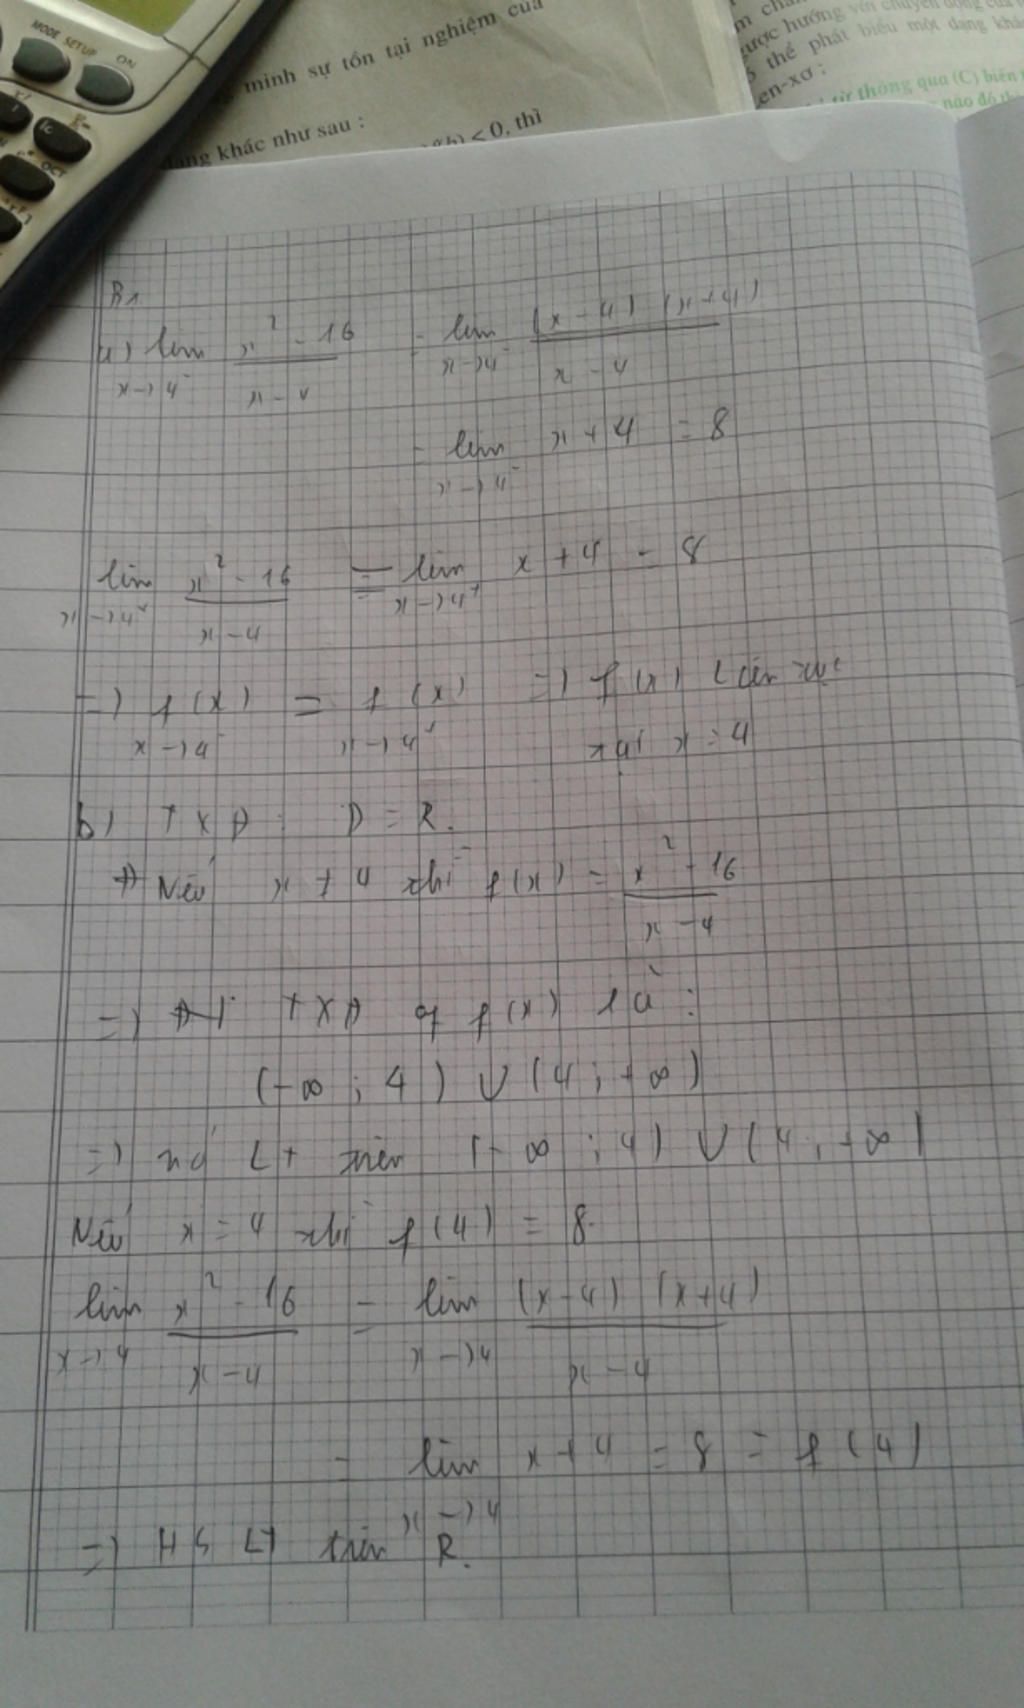 MODE SETUP ON
minh sự tồn tại nghiệm của
dạng khác như sau :
< 0, thì
được hướng với chuyển động của
thể phát biểu một dạng khá
en-xơ :
từ thông qua (C) biến
nào đó th
B1
a) lim x→4⁻ (x² - 16)/(x - 4) = lim x→4⁻ (x - 4)(x + 4)/(x - 4)
= lim x→4⁻ x + 4 = 8
lim x→4⁺ (x² - 16)/(x - 4) = lim x→4⁺ x + 4 = 8
=) f(x) x→4⁻ = f(x) x→4⁺ =) f(x) liên tục
tại x = 4
b) TXĐ : D = R.
+) Nếu x ≠ 4 thì f(x) = (x² - 16)/(x - 4)
=) TXĐ of f(x) là :
(-∞ ; 4) ∪ (4 ; +∞)
=) nó LT trên (-∞ ; 4) ∪ (4 ; +∞)
Nếu x = 4 thì f(4) = 8.
lim x→4 (x² - 16)/(x - 4) = lim x→4 (x - 4)(x + 4)/(x - 4)
= lim x→4 x + 4 = 8 = f(4)
=) HS LT trên R.